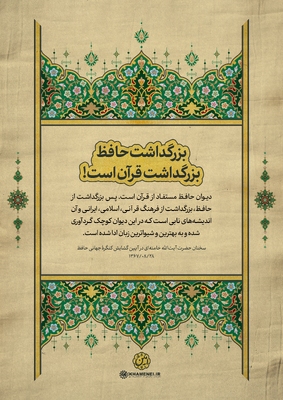 بزرگداشت حافظ
بزرگداشت قرآن است!
دیوان حافظ مستفاد از قرآن است. پس بزرگداشت از
حافظ، بزرگداشت از فرهنگ قرآنی، اسلامی، ایرانی و آن
اندیشه‌های نابی است که در این دیوان کوچک گردآوری
شده و به بهترین و شیواترین زبان ادا شده است.
سخنان حضرت آیت‌الله خامنه‌ای در آیین گشایش کنگره جهانی حافظ
۱۳۶۷/۰۸/۲۸
KHAMENEI.IR